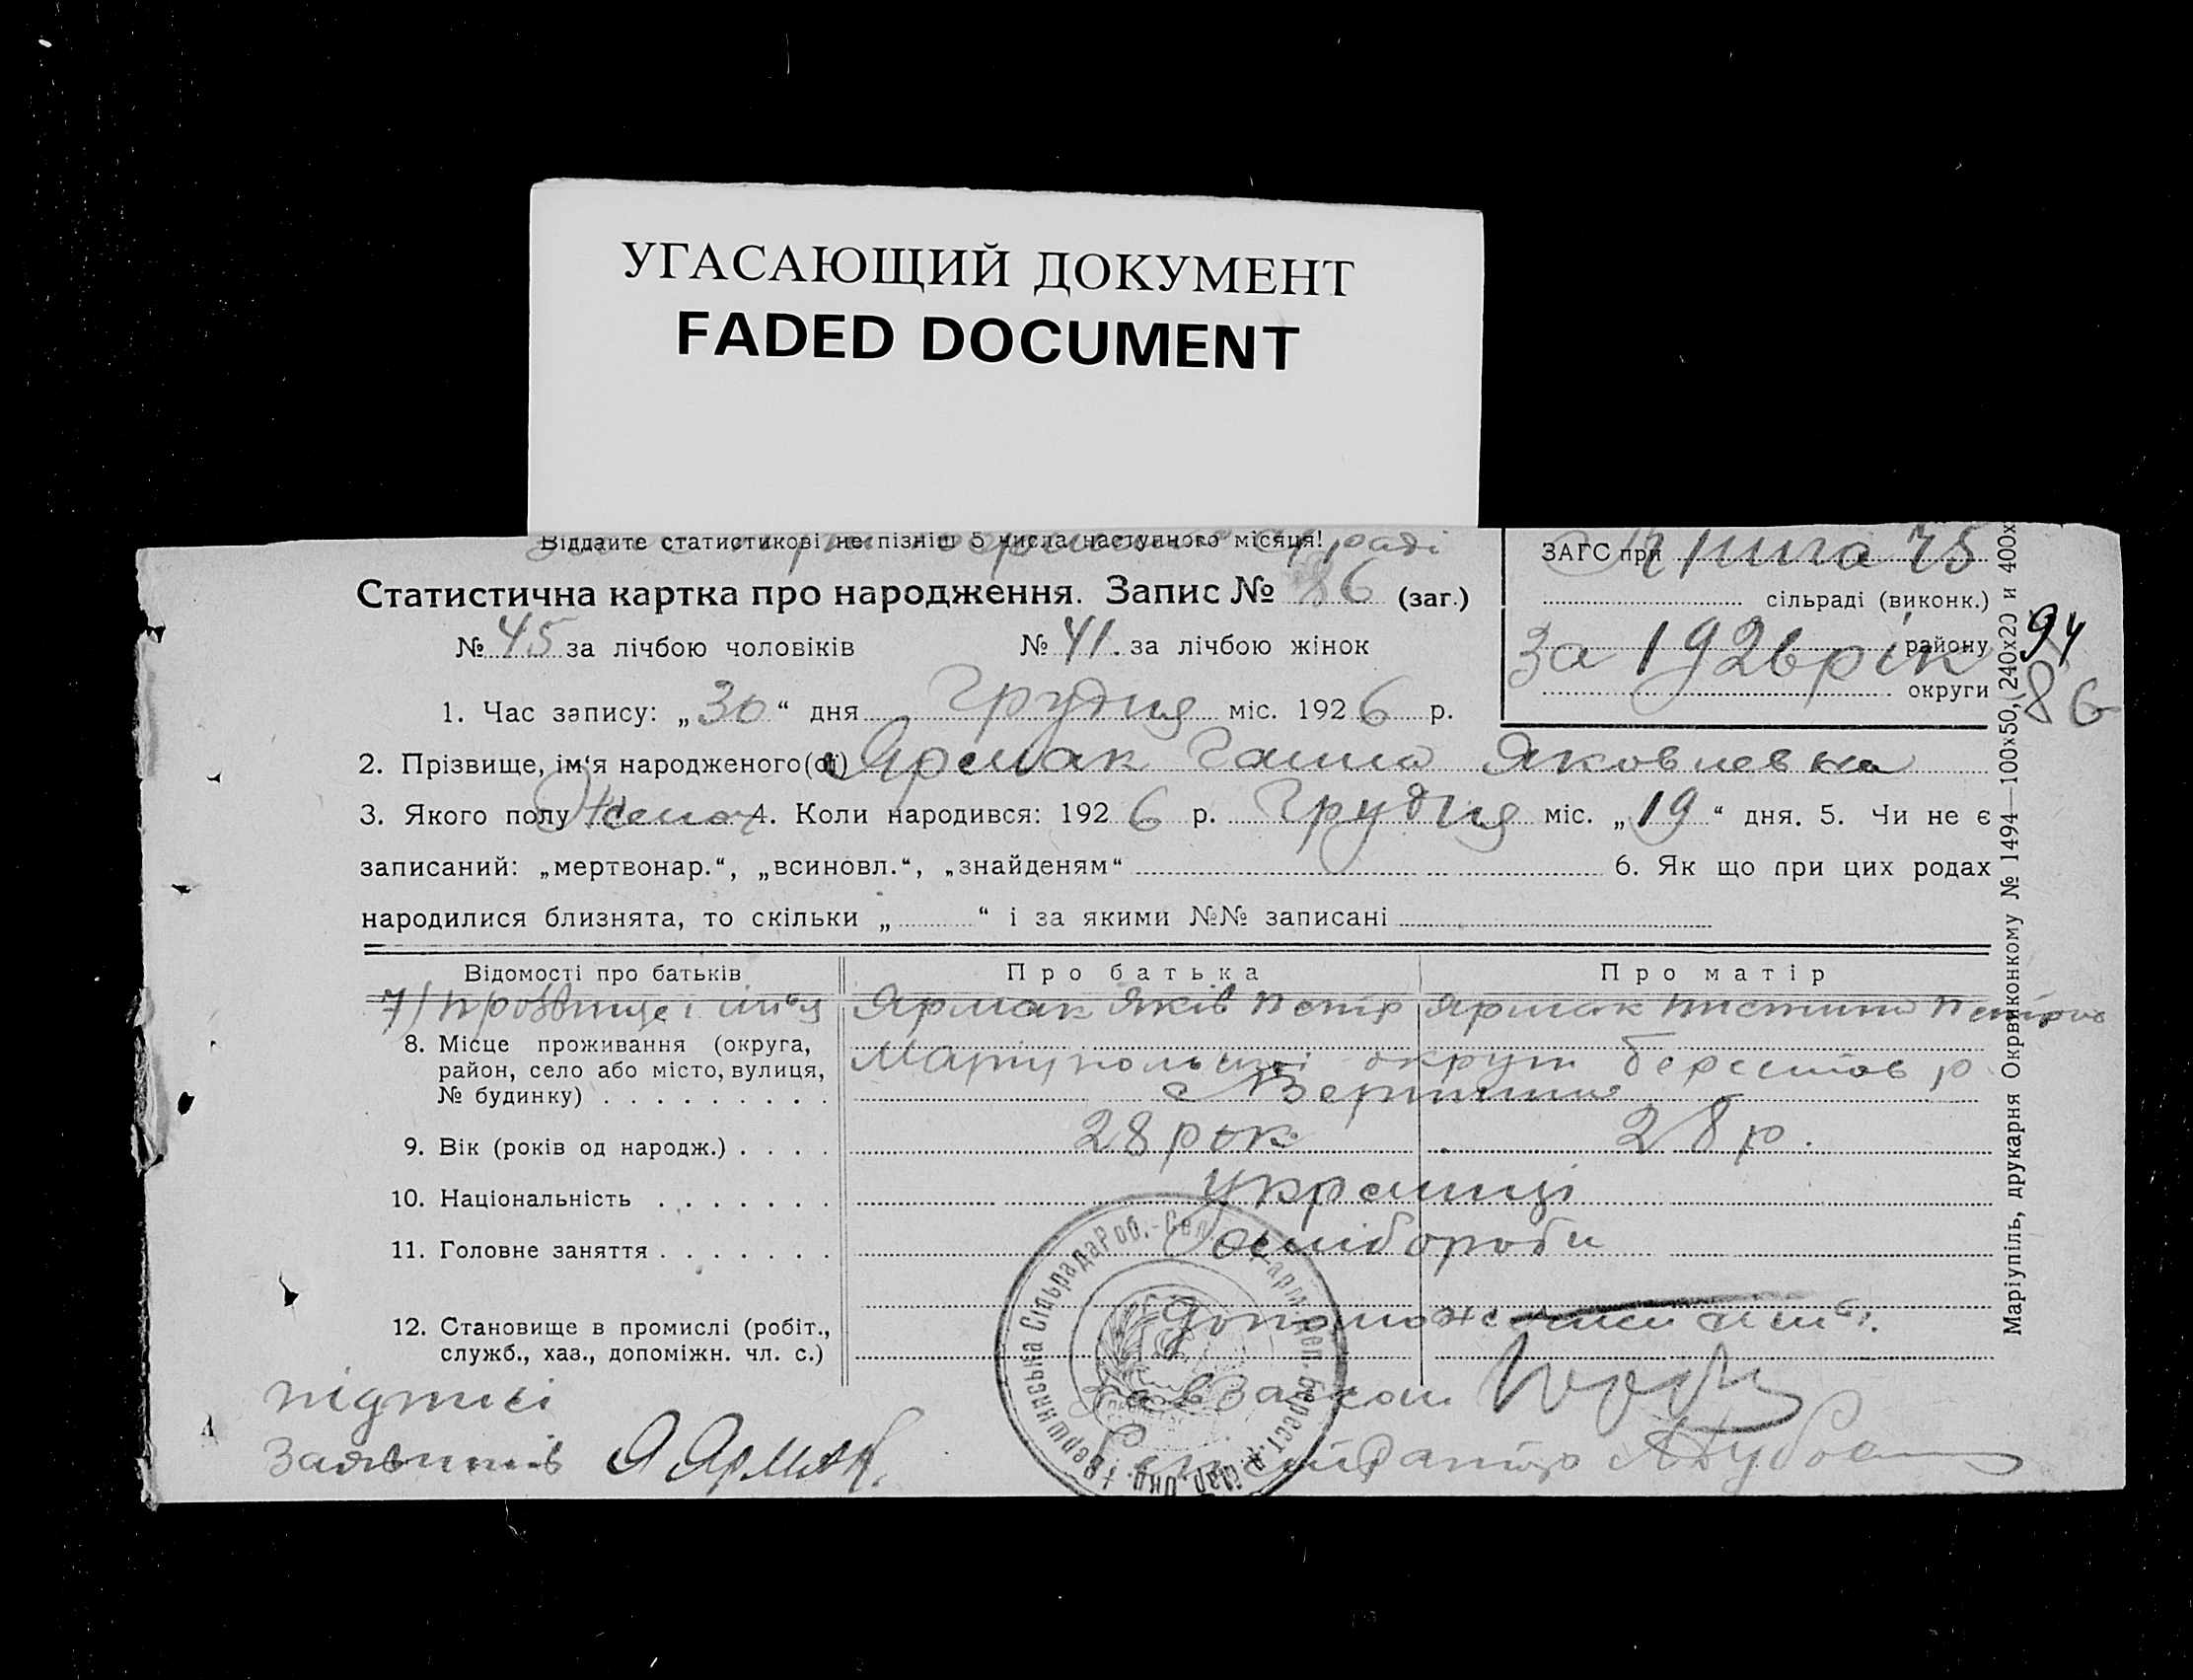 УГАСАЮЩИЙ ДОКУМЕНТ
FADED DOCUMENT
Віддайте статистикові не пізніш 5 числа наступного місяця!
Статистична картка про народження. Запис № 86 (заг.)
№ 45 за лічбою чоловіків № 41. за лічбою жінок
ЗАГС при Книга 75
сільраді (виконк.)
за 1926 рік району
округи
94
86
1. Час запису: „30“ дня Грудня міс. 1926 р.
2. Прізвище, ім'я народженого(ої) Ярмак Ганна Яковлевна
3. Якого полу Женоч 4. Коли народився: 1926 р. Грудня міс. „19“ дня. 5. Чи не є
записаний: „мертвонар.“, „всиновл.“, „знайденям“ 6. Як що при цих родах
народилися близнята, то скільки „ “ і за якими №№ записані
Відомості про батьків Про батька Про матір
7/ прозвище і імʼя Ярмак Яків Петр Ярмак
8. Місце проживання (округа,
район, село або місто, вулиця,
№ будинку)
Маріупольської округи Берестов р.
с Вершина
9. Вік (років од народж.) 28 рок 28 р.
10. Національність Українці
11. Головне заняття хлібороби
12. Становище в промислі (робіт.,
служб., хаз., допоміжн. чл. с.)
підписі
заявників Я Ярмак
Завзагсом
Вершинська Сільрада Роб.-Сел.
Маріупіль, друкарня Окрвиконкому № 1494—100х50, 240х20 и 400х